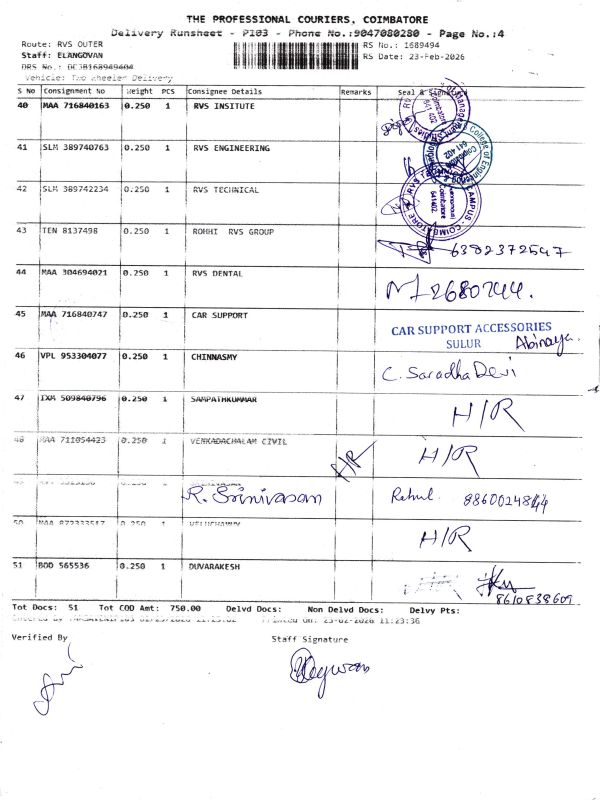 THE PROFESSIONAL COURIERS, COIMBATORE
Delivery Runsheet - P103 - Phone No.:9047080280 - Page No.:4
Route: RVS OUTER
RS No.: 1689494
Staff: ELANGOVAN
RS Date: 23-Feb-2026
DRS No.:
Vehicle: Two Wheeler Delivery
S No Consignment No Weight PCS Consignee Details Remarks Seal &
40 MAA 716840163 0.250 1 RVS INSITUTE
41 SLM 389740763 0.250 1 RVS ENGINEERING
42 SLM 389742234 0.250 1 RVS TECHNICAL
43 TEN 8137498 0.250 1 ROHHI RVS GROUP 6382372547
44 MAA 304694021 0.250 1 RVS DENTAL 2680744.
45 MAA 716840747 0.250 1 CAR SUPPORT CAR SUPPORT ACCESSORIES
SULUR Abinaya.
46 VPL 953304077 0.250 1 CHINNASMY C. Saradha Devi
47 IXM 509840796 0.250 1 SAMPATHKUMMAR H/R
48 MAA 711054423 0.250 1 VENKADACHALAM CIVIL H/R H/R
R. Srinivasan Rahul
50 0.250 1 H/R
51 BOD 565536 0.250 1 DUVARAKESH
8610838609
Tot Docs: 51 Tot COD Amt: 750.00 Delvd Docs: Non Delvd Docs: Delvy Pts:
Printed On: 23-02-2026 11:23:36
Verified By Staff Signature